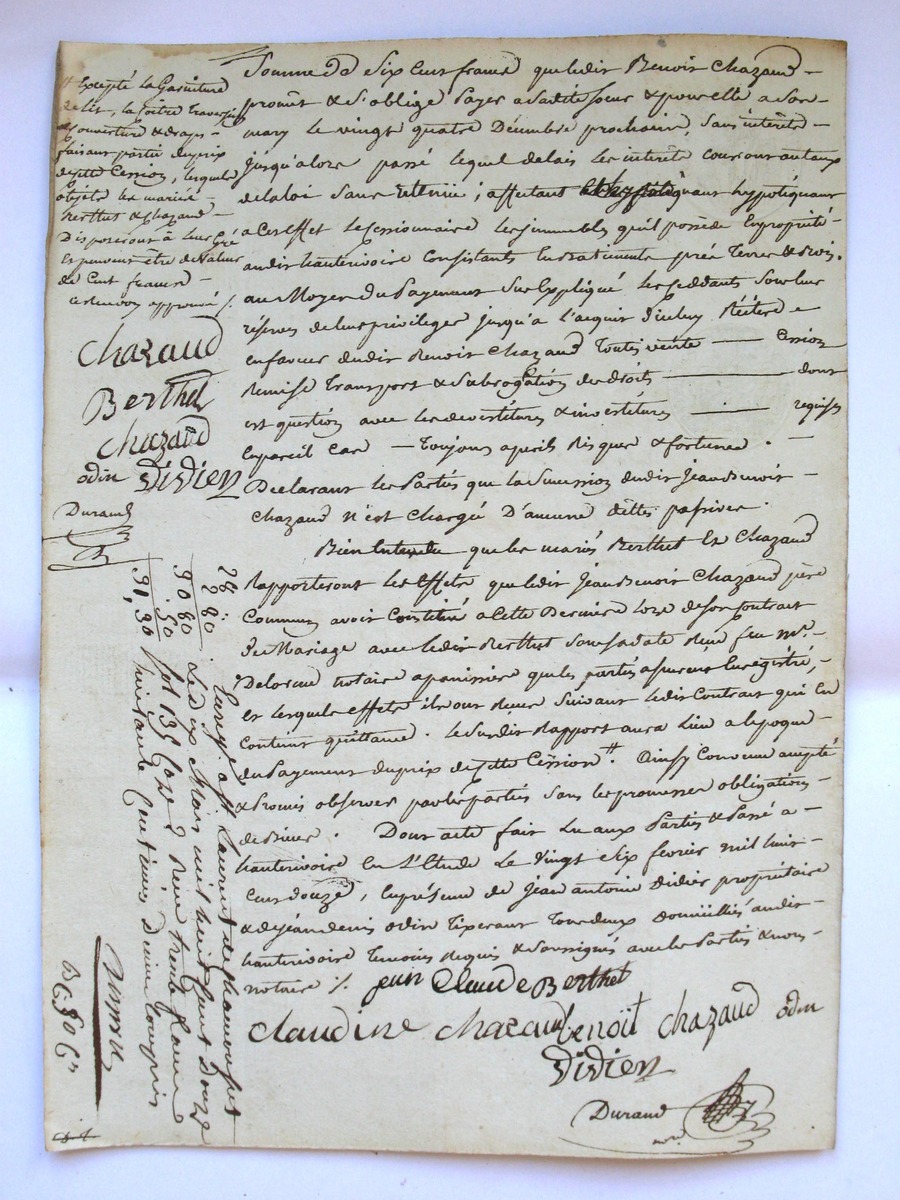 Somme de Six Cent francs que ledit Benoit Chazaud –
promet & S'oblige payer a Sadite Soeur & pour elle a Son –
mary le vingt quatre Décembre prochain, Sans interêts –
jusqu'alors passé lequel delais les interêts courront au taux
de la loi Sans retenue ; affectant & hypotéquant
a Cet Effet le Cessionnaire les immeubles qu'il possède En propriété –
audit hauterivoire Consistants En batiments prés Terres & bois.
au Moyen du Payement Sus Expliqué les Ceddants Sous leur
réserves de leurs privileges jusqu'a l'acquit d'iceluy
en faveur dudit Benoit Chazaud Toutes vente —— Cession
Remise Transport & Subrogation des droits —— dont
est question avec les devestitures & investitures —— requises
En pareil Cas — Toujours a perils Risques & fortunes . –
Declarant les Parties que la Succession dudit Jean Benoit –
Chazaud N'est Chargée D'aucune dettes passives .
Bien Entendu que les mariés Berthet Et Chazaud
Rapporteront les Effets que ledit Jean Benoit Chazaud père
Commun avoit Constitué a Cette Derniere lors de Son Contrat
de Mariage avec ledit Berthet Sous Sa date Reçu feu Mr. –
Delorme notaire a panissiere que les parties assurent Enregistré, –
Et lesquels effets ils ont Reçu Suivant ledit Contrat qui En
Contient quittance . le Susdit Rapport aura lieu a l'epoque
du Payement du prix de Cette Cession #. Ainsy Convenu accepté
& Promis observer par les parties Sous les promesses obligations –
de Biens . Dont acte fait Lu aux Parties & Passé a –
hauterivoire En l'Etude Le Vingt Six fevrier mil huit –
Cent douze, En présence de Jean antoine Didier propriétaire
& de jean denis odin Tixerant Tous deux domiciliés audit –
hauterivoire Temoins Requis & Soussignés avec les Parties & nous –
notaire ./.
jean Claude Berthet
Claudine chazaud benoit chazaud odin
Didier
Durand
# Excepté la Garniture
de lit, la Coitre Traversin
Couverture & draps –
faisant partie du prix
de Cette Cession, lesquels
objets les mariés –
berthet & chazaud –
Disposeront à leur Gré
Et peuvent être de Valeur
de Cent francs –
Ce Renvoy approuvé ./.
Chazaud
Berthet
Chazaud
odin Didier
Durand
Enregé. a St Laurent de Chamousset
Le dix Mars mil huit Cent Douze
fol 135 Case 2 Reçu trente francs
Cinquante Centimes Decime Compris
28.
2 80
30 80
. 50
31, 30